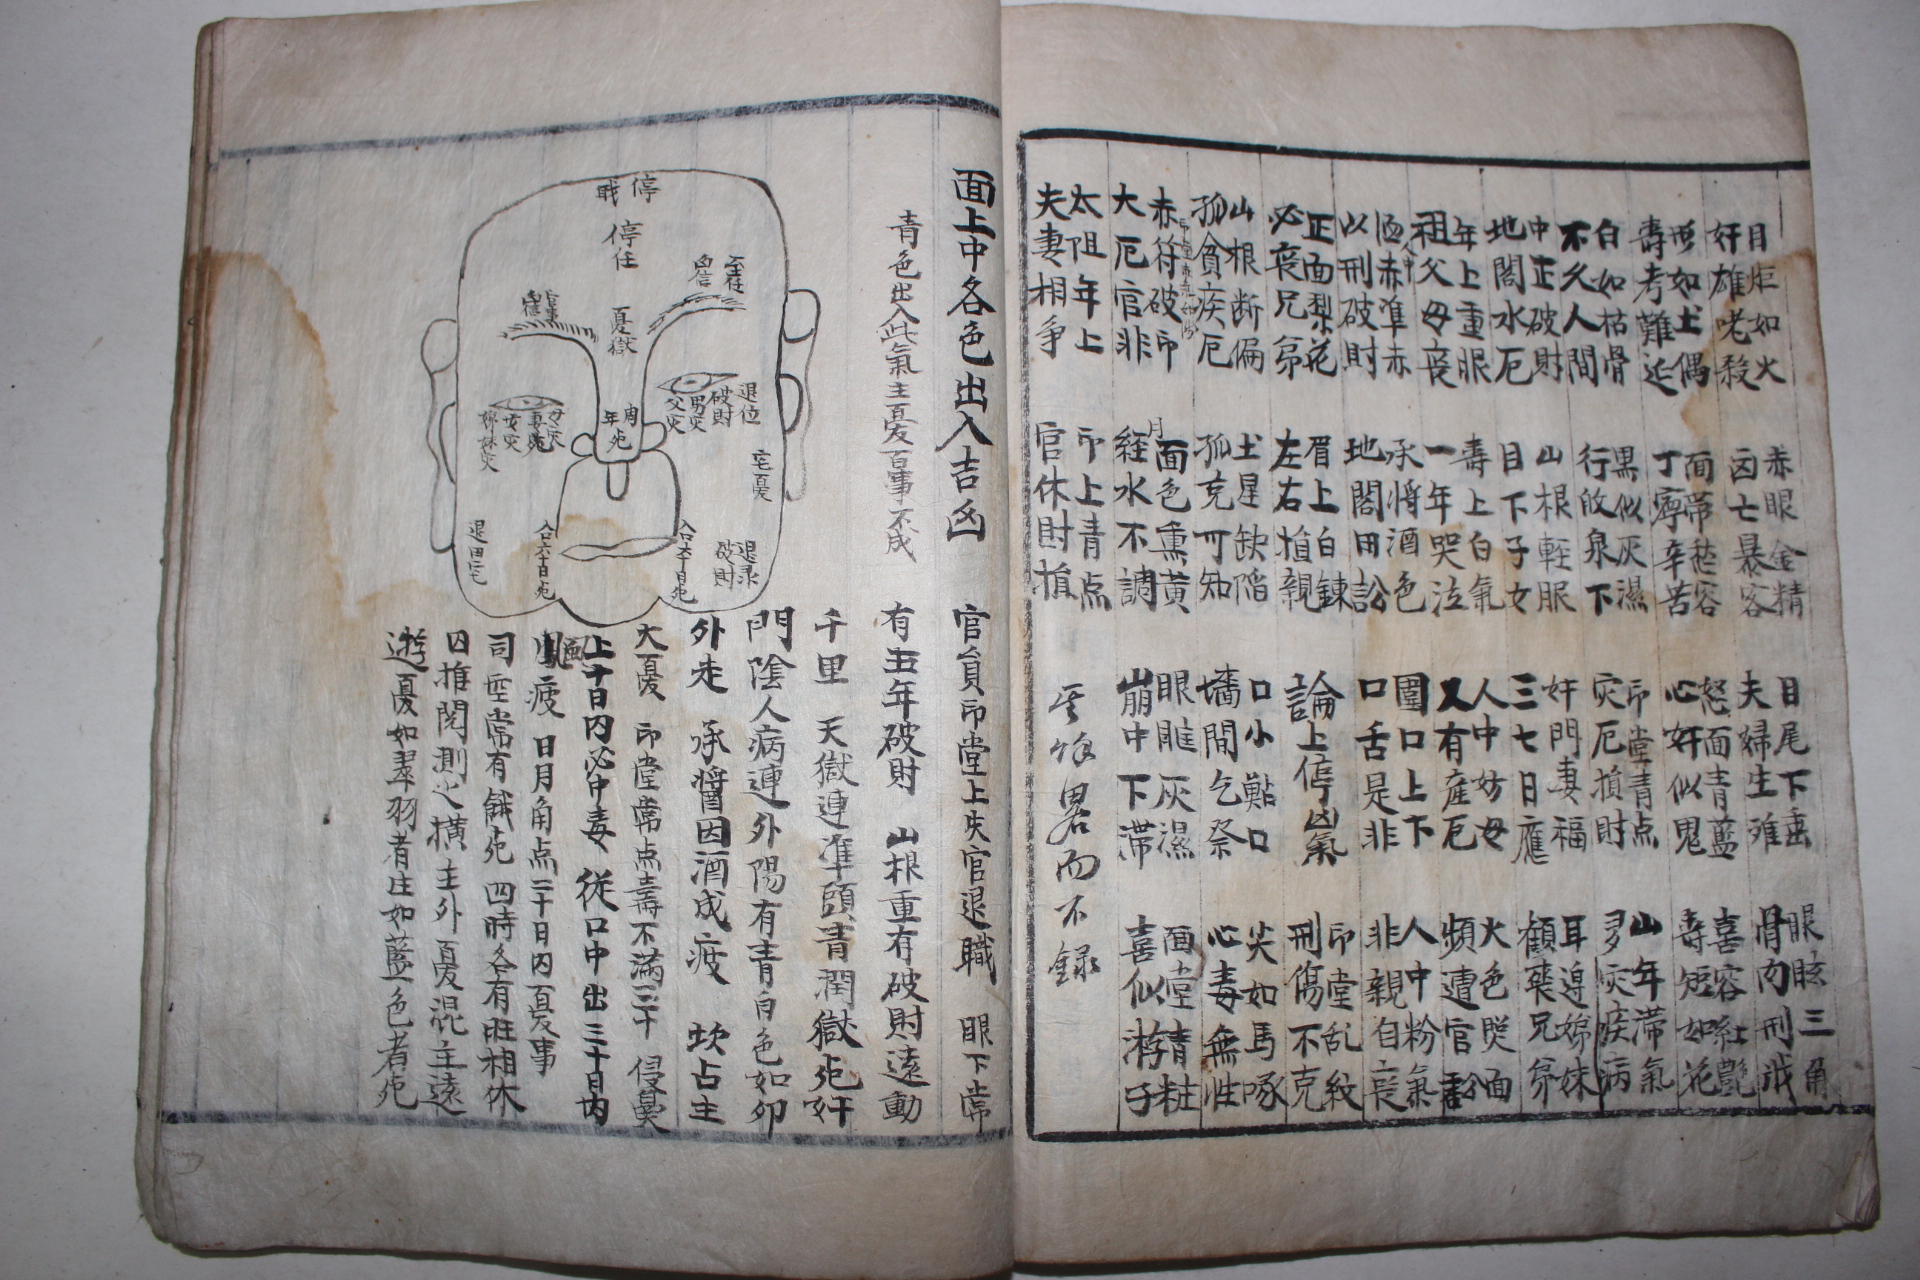 目炬如火
奸雄咾殺
赤眼金精
囟七暴客
目尾下垂
夫婦生难
眼眩三角
骨肉刑戎
形如土偶
壽考難近
面帶愁容
丁寧辛苦
怒面青藍
心奸似鬼
喜容紅艶
壽短如花
白如枯骨
不久人間
黑似灰濕
行啟泉下
印堂青点
灾厄損財
山年滞氣
多灾疾病
中正破財
地閣水厄
山根輕眼
目下子女
奸門妻福
三七日應
耳邊姊妹
顴藥兄弟
年上重眼
祖父母喪
壽上白氣
一年哭泣
人中妨母
又有産厄
火色哭面
頻遭官訟
人中
洒赤準赤
以刑破財
承将酒色
地閣田訟
圍口上下
口舌是非
人中粉氣
非親自喪
正面梨花
必喪兄弟
眉上白鍊
左右損親
論上停凶氣
印堂乱紋
刑傷不克
山根断偏
孤貧疾厄
土星缺陷
孤克可知
口小點口
墻間乞祭
尖如馬啄
心毒無性
赤符破印
大厄官非
月
面色熏黄
経水不調
眼睢灰濕
崩中下滞
面堂精粧
喜似游子
太阻年上
夫妻相争
印上青点
官休財損
其餘畧而不録
面上中各色出入吉凶
官員印堂上失官退職
眼下常
青色出入此氣主憂百事不成
有五年破財
山根重有破財遠動
千里
天獄連準頭青潤獄死奸
門陰人病連外陽有青白色如卯
外走
承醬因酒成疲
坎占主
大憂
印堂常点壽不滿三十
侵鼻
上十日内必中毒
從口中出三十日内
風疲
日月角点二十日内憂事
司空常有餓死
四時各有旺相休
囚推閱測之橫主外憂混主遠
遊憂如翠羽者庄如藍色者死
停
戝
停任
憂獄
退位
破財
男灾
父灾
年
死
母灾
妻死
女灾
姊妹灾
宅憂
退田宅
合六十日死
合六十日死
退录
破財